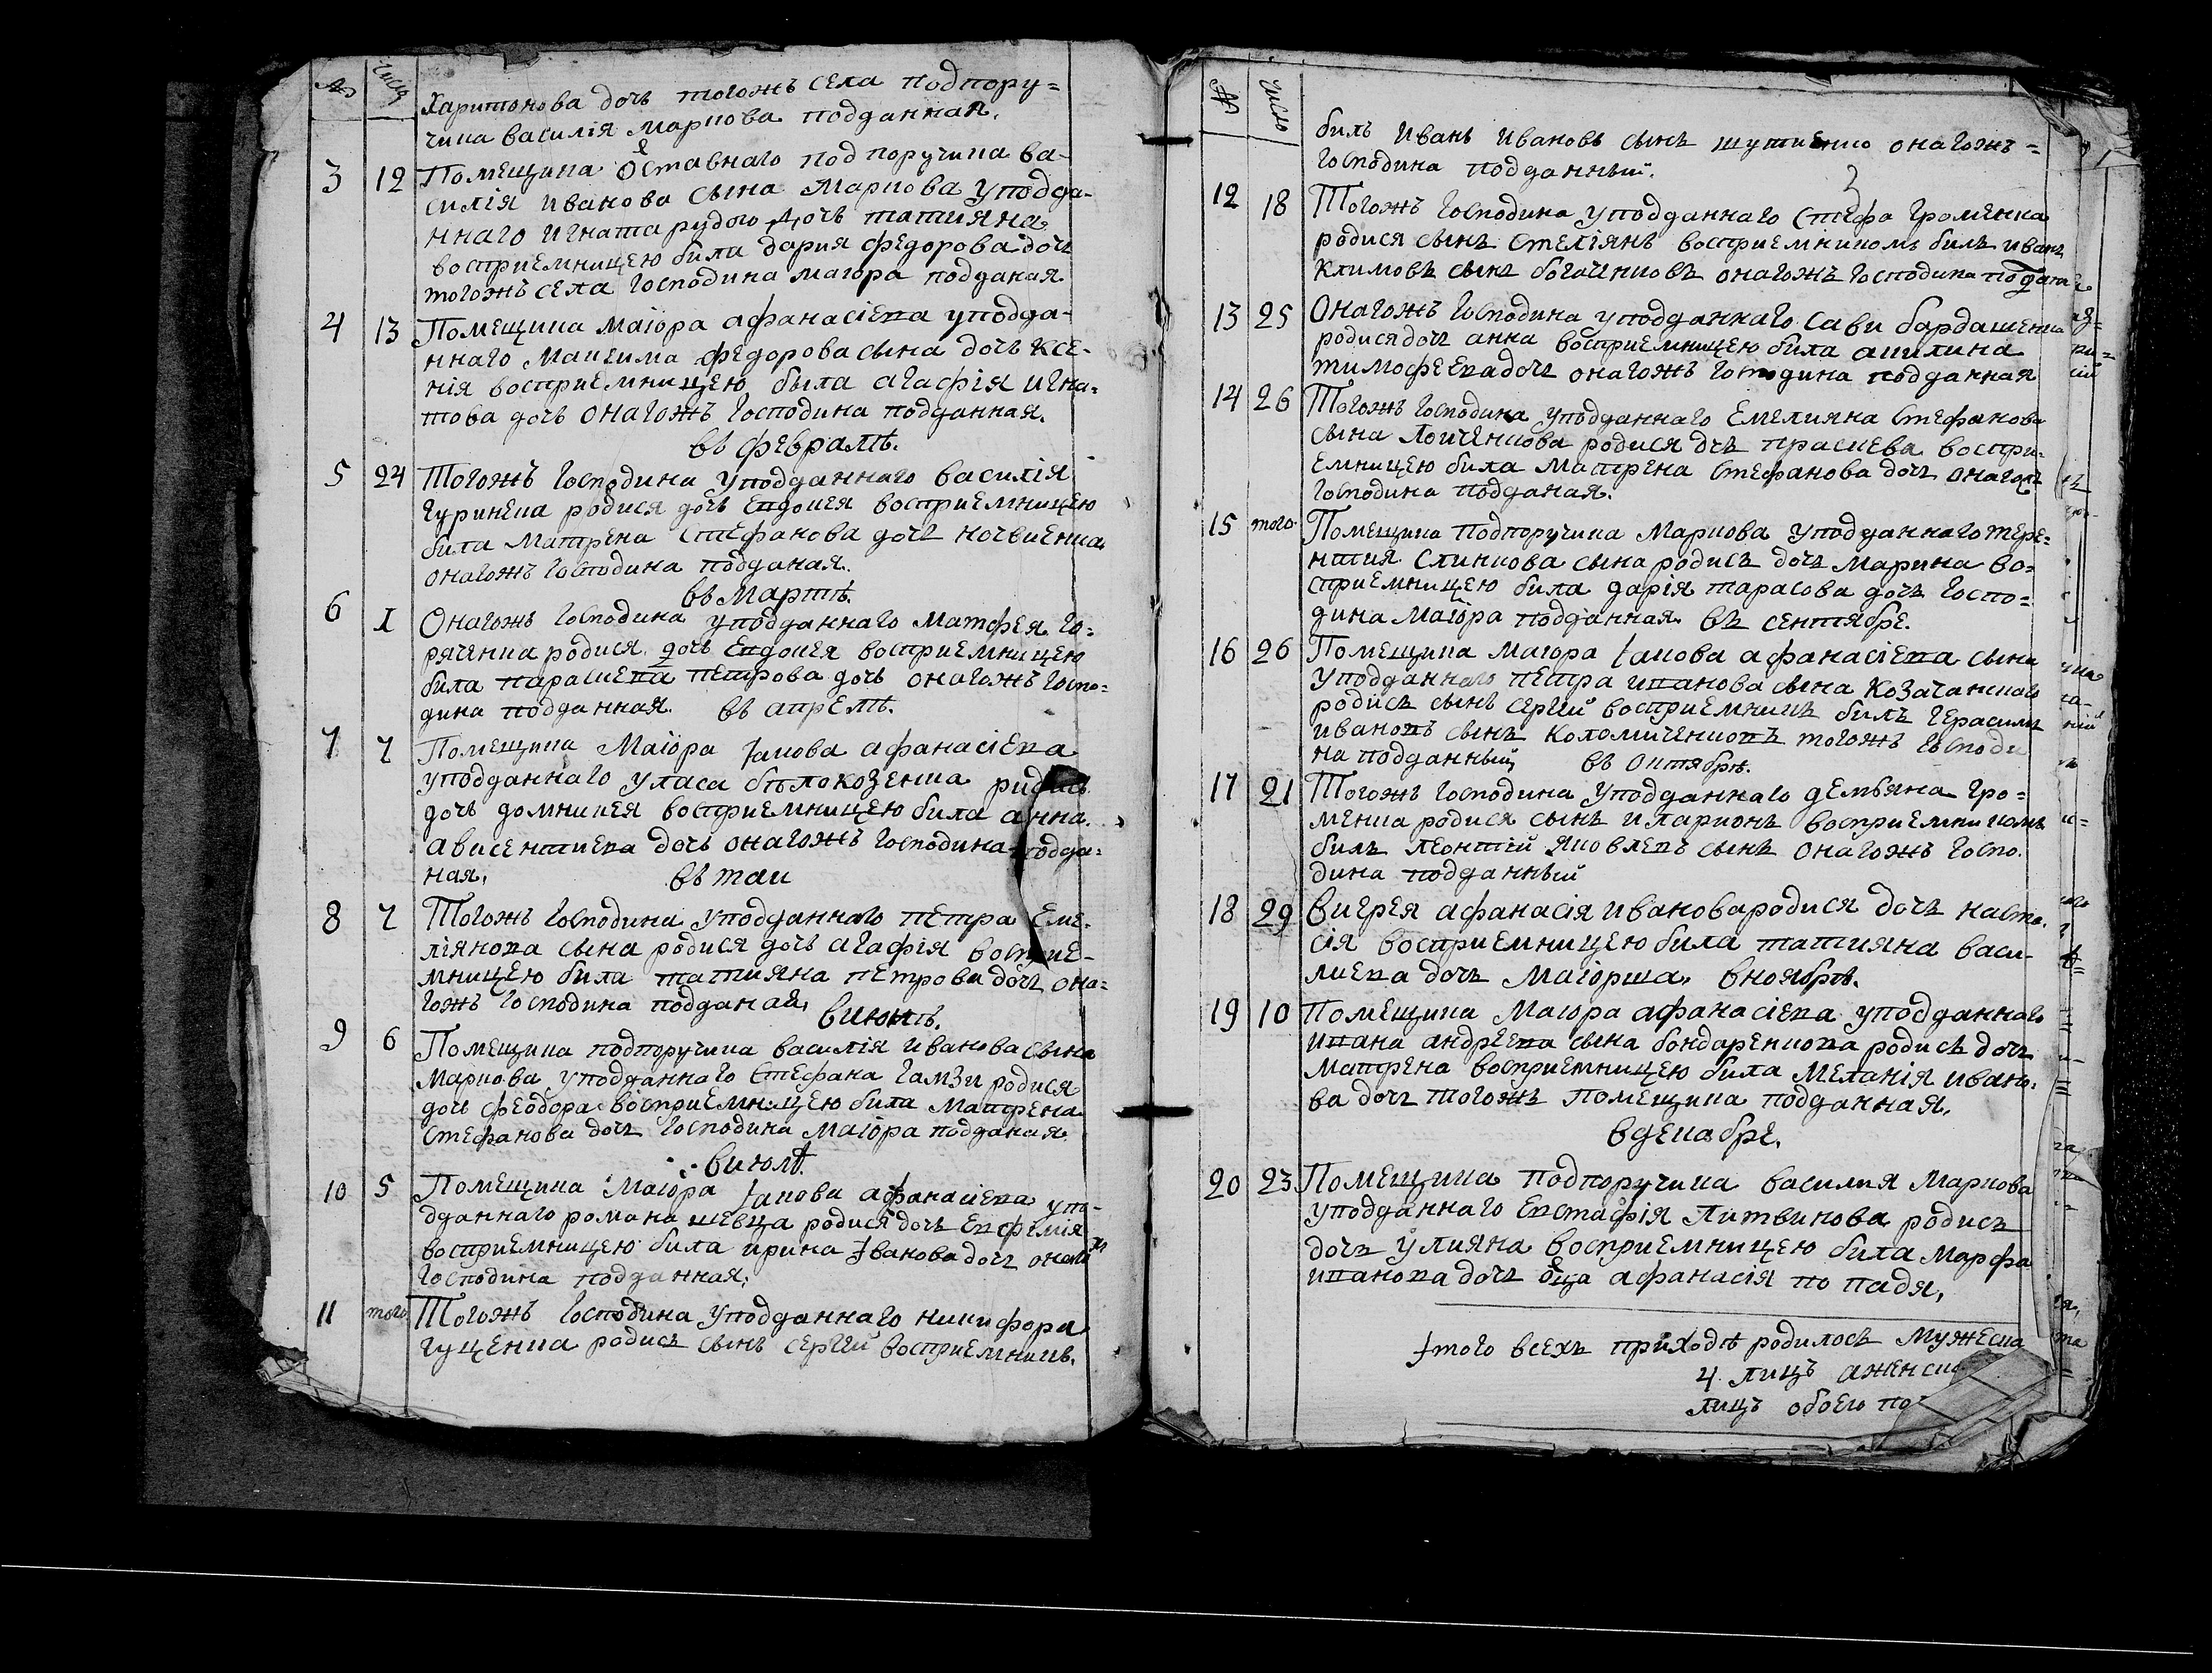 № число
Харитонова дочь тогожъ села подпору=
чика василія Маркова подданная.
3 12 Помещика Оставнаго подпоручика ва-
силія иванова сына Маркова уподда-
ннаго игната рудого дочь татияна
восприемницею била дария федорова дочъ
тогожъ села господина маіора подданая
4 13 Помещика Маіора афанасіева уподда-
ннаго Максима федорова сына дочь ксе-
нія восприемницею была агафія игна=
това дочь онагожъ господина подданная.
въ февралѣ.
5 24 Тогожъ господина уподданнаго василія
гуринека родися дочь Евдокея восприемницею
била Матрена Стефанова дочъ
онагожъ господина подданая.
въ Мартѣ.
6 1 Онагожъ господина уподданнаго Матфея го=
ряченка родися дочь Евдокея восприемницею
била параскева петрова дочь онагожъ госпо=
дина подданная. въ апрелѣ.
7 7 Помещика Маіора Іакова афанасіева
уподданнаго уласа бѣлокозенка родись
дочь домникея восприемницею била анна
авксентиева дочь онагожъ господина подда=
ная. въ маи
8 7 Тогожъ господина уподданнаго петра Еме-
ліянова сына родися дочь агафія восприе-
мницею била татияна петрова дочъ она=
гожъ господина подданая. виюнѣ.
9 6 Помещика подпоручика василія иванова сына
Маркова уподданнаго Стефана гамзи родися
дочь феодора восприемницею била Матрена
Стефанова дочъ господина маіора подданая.
виюлѣ.
10 5 Помещика Маіора Іакова афанасіева упо-
дданнаго романа шевца родися дочь Евфемія
восприемницею била ирина Іванова дочъ онагожъ
господина подданная.
11 того Тогожъ господина уподданнаго никифора
гуценка родисъ сынъ сергий восприемникъ
№ число
билъ иванъ ивановъ сынъ онагожъ=
господина подданный.
12 18 Тогожъ господина уподданнаго Стефа громенка
родися сынъ Стеліянъ восприемникомъ билъ иванъ
климовъ сынъ богаченковъ онагожъ господина поддан
13 25 Онагожъ господина уподданнаго Сави бардашенка
родися дочъ анна восприемницею била акилина
тимофеева дочъ онагожъ господина подданная
14 26 Тогожъ господина уподданнаго Емелияна Стефанова
сына родися дчъ праскева воспри-
емницею била Матрена Стефанова дочъ онагожъ
господина подданая.
15 того Помещика подпоручика Маркова уподданнаго тере=
нтия Слинкова сына родисъ дочъ марина во=
сприемницею била дарія тарасова дочь госпо=
дина Маіора подданная. въ сентябре.
16 26 Помещика маіора Іакова афанасіева сына
уподданнаго петра иванова сына козачанскаго
родисъ сынъ сергий восприемникъ билъ герасимъ
ивановъ сынъ коломиченковъ тогожъ господи
на подданный въ октябрѣ.
17 21 Тогожъ господина уподданнаго демьяна гро=
менка родися сынъ иларионъ восприемникомъ
билъ леонтій яковлевъ сынъ онагожъ госпо.
дина подданный
18 29 викрея афанасія иванова родися дочъ наста.
сія восприемницею била татияна васи-
лиева дочъ маіорша. вноябрѣ.
19 10 Помещика Маіора афанасіева уподданнаго
ивана андреева сына бондаренкова родисъ дочъ
матрена восприемницею била Меланія ивано.
ва дочъ тогожъ помещика подданная.
вдекабре.
20 23 Помещика подпоручика василия Маркова
уподданнаго Евстафія Литвинова родисъ
дочъ улияна восприемницею била марфа
иванова дочъ отца афанасія по падя.
Итого всехъ приходѣ родилосъ Мужеска
4. лицъ аженск
лицъ обоего по